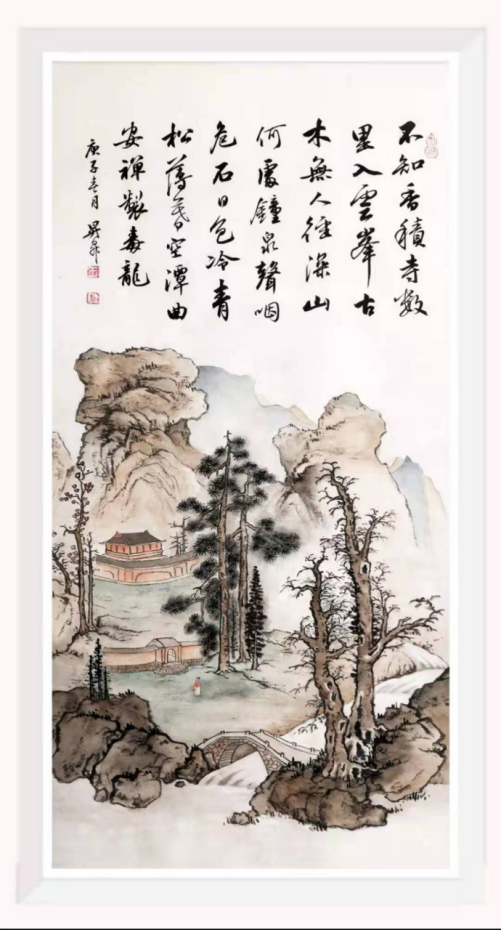 不知香積寺數
里入雲峯古
木無人徑深山
何處鐘泉聲咽
危石日色冷青
松薄暮空潭曲
安禪製毒龍
庚子春月